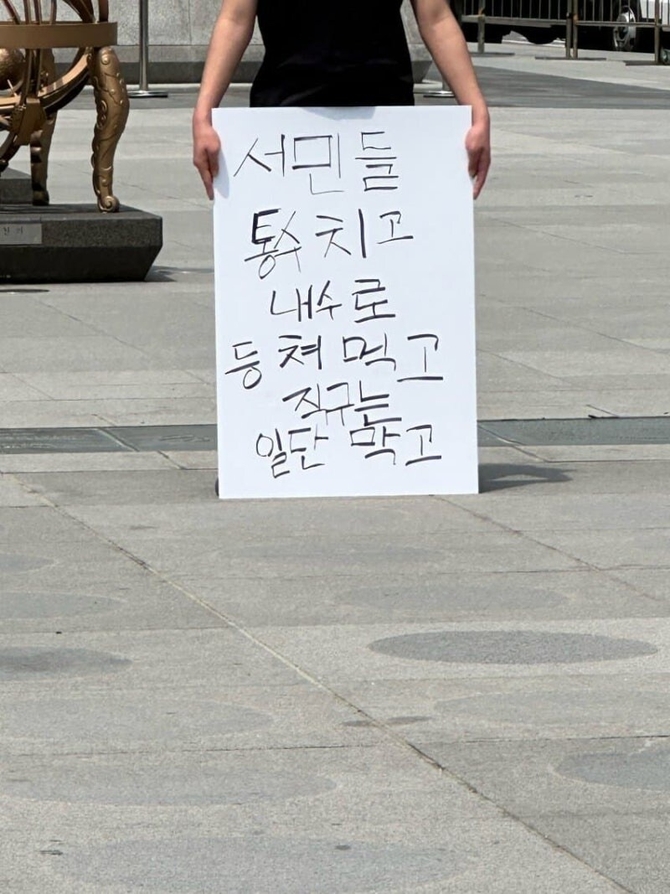 서민들
통수 치고
내수로
등쳐 먹고
직구는
일단 막고